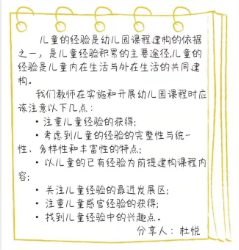 儿童的经验是幼儿园课程建构的依据
之一，是儿童经验积累的主要途径,儿童的
经验是儿童内在生活与外在生活的共同建
构。
我们教师在实施和开展幼儿园课程时应
该注意以下几点：
• 注重儿童经验的获得;
• 考虑到儿童的经验的完整性与统一
性、多样性和丰富性的特点;
• 以儿童的已有经验为前提建构课程内
容;
• 关注儿童经验的最近发展区;
• 注重儿童感官经验的获得;
• 找到儿童经验中的兴趣点。
分享人：杜悦